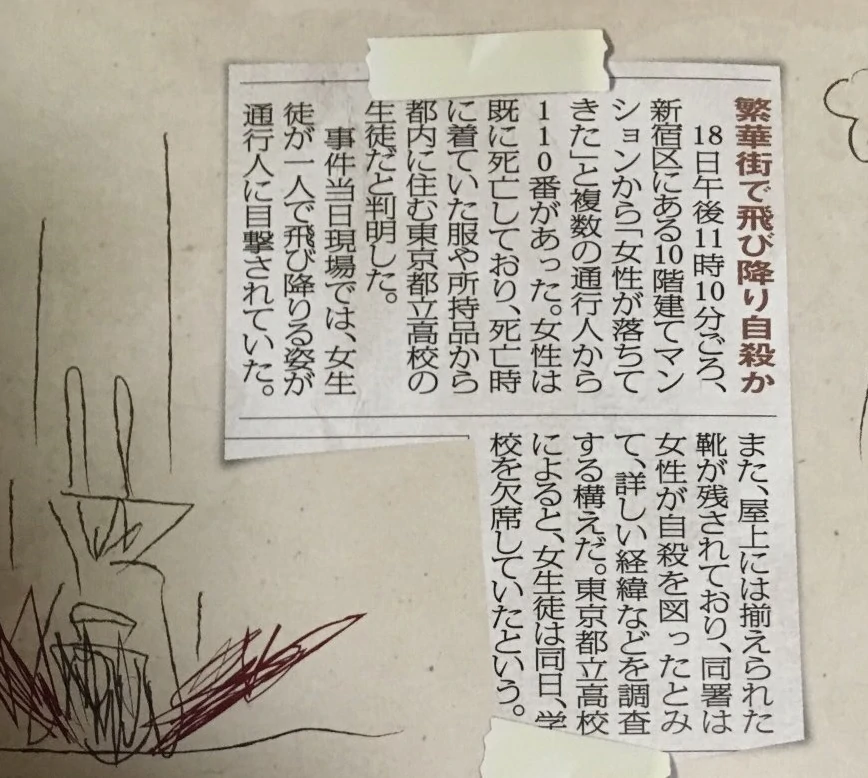 繁華街で飛び降り自殺か
18日午後11時10分ごろ、
新宿区にある10階建てマン
ションから「女性が落ちて
きた」と複数の通行人から
110番があった。女性は
既に死亡しており、死亡時
に着ていた服や所持品から
都内に住む東京都立高校の
生徒だと判明した。
事件当日現場では、女生
徒が一人で飛び降りる姿が
通行人に目撃されていた。
また、屋上には揃えられた
靴が残されており、同署は
女性が自殺を図ったとみ
て、詳しい経緯などを調査
する構えだ。東京都立高校
によると、女生徒は同日、学
校を欠席していたという。